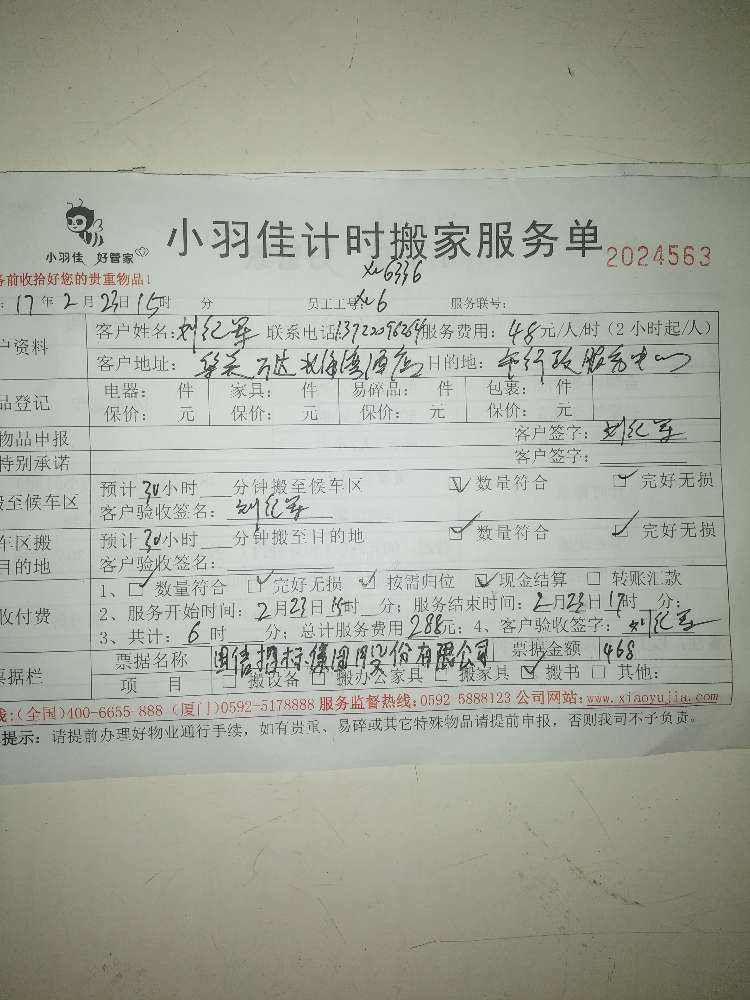 小羽佳 好管家
小羽佳计时搬家服务单 2024563
务前收拾好您的贵重物品!
xu6336
：17年2月23日15时 分 员工工号：xu6 服务联号：
户资料 客户姓名：刘纪军 联系电话 服务费用：48元/人/时（2小时起/人）
客户地址： 万达 酒店 目的地：市行政服务中心
品登记 电器： 件 家具： 件 易碎品： 件 包裹： 件
保价： 元 保价： 元 保价： 元 保价： 元
物品申报 客户签字：刘纪军
特别承诺 客户签字：
搬至候车区 预计 小时 分钟搬至候车区 ☑数量符合 ☑完好无损
客户验收签名：刘纪军
车区搬目的地 预计 小时 分钟搬至目的地 ☑数量符合 ☑完好无损
客户验收签名：
收付费 1、☑数量符合 ☑完好无损 ☑按需归位 ☑现金结算 □转账汇款
2、服务开始时间：2月23日15时 分；服务结束时间：2月23日17时 分；
3、共计：6时 分；总计服务费用288元；4、客户验收签字：刘纪军
票据栏 票据名称 国信招标集团股份有限公司 票据金额 468
项 目 □搬设备 □搬办公家具 □搬家具 ☑搬书 □其他：
线：(全国)400-6655-888 (厦门)0592-5178888 服务监督热线：0592-5888123 公司网站：www.xiaoyujia.com
提示：请提前办理好物业通行手续，如有贵重、易碎或其它特殊物品请提前申报，否则我司不予负责。